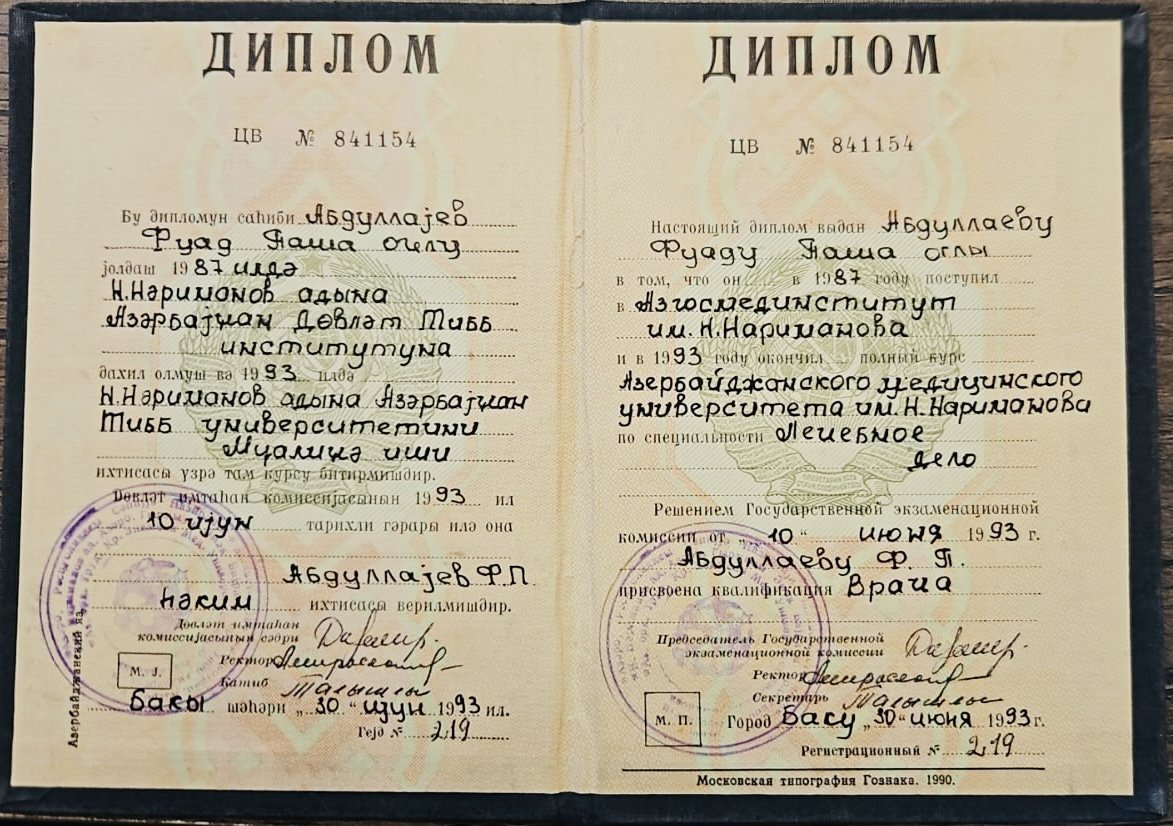 ДИПЛОМ
ЦВ № 841154
Бу дипломун саһиби Абдуллајев
Фуад Паша оғлу
јолдаш 1987 илдә
Н.Нәриманов адына
Азәрбајҹан Дөвләт Тибб
институтуна
дахил олмуш вә 1993 илдә
Н.Нәриманов адына Азәрбајҹан
Тибб университетини
Муалиҹә иши
ихтисасы үзрә там курсу битирмишдир.
Дөвләт имтаһан комиссијасынын 1993 ил
10 ијун тарихли гәрары илә она
Абдуллајев.Ф.П.
һәким ихтисасы верилмишдир.
Дөвләт имтаһан
комиссијасынын сәдри
Ректор
Катиб
М. Ј.
Бакы шәһәри „30“ ијун 1993 ил.
Гејд № 219
Азербайджанский яз.
ДИПЛОМ
ЦВ № 841154
Настоящий диплом выдан Абдуллаеву
Фуаду Паша оглы
в том, что он в 1987 году поступил
в Азгосмединститут
им. Н.Нариманова
и в 1993 году окончил полный курс
Азербайджанского медицинского
университета им. Н.Нариманова
по специальности Лечебное
дело
Решением Государственной экзаменационной
комиссии от „10“ июня 1993 г.
Абдуллаеву Ф. П.
присвоена квалификация Врача
Председатель Государственной
экзаменационной комиссии
Ректор
Секретарь
М. П.
Город Баку „30“ июня 1993 г.
Регистрационный № 219
Московская типография Гознака. 1990.